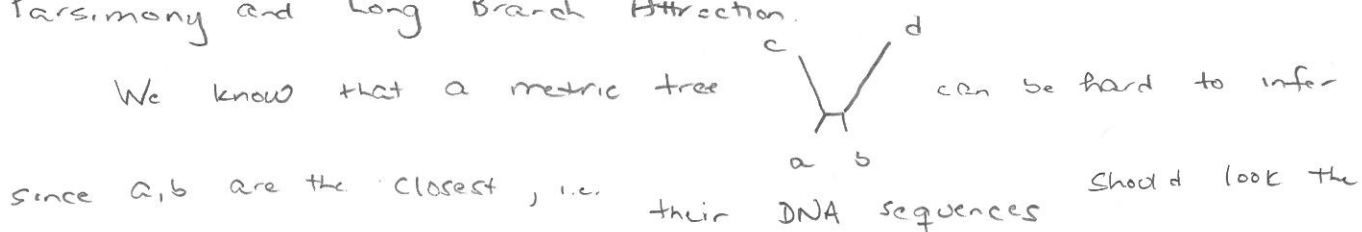 Parsimony and Long Branch Attraction.
c d
We know that a metric tree can be hard to infer
a b
since a,b are the closest, i.e. their DNA sequences should look the